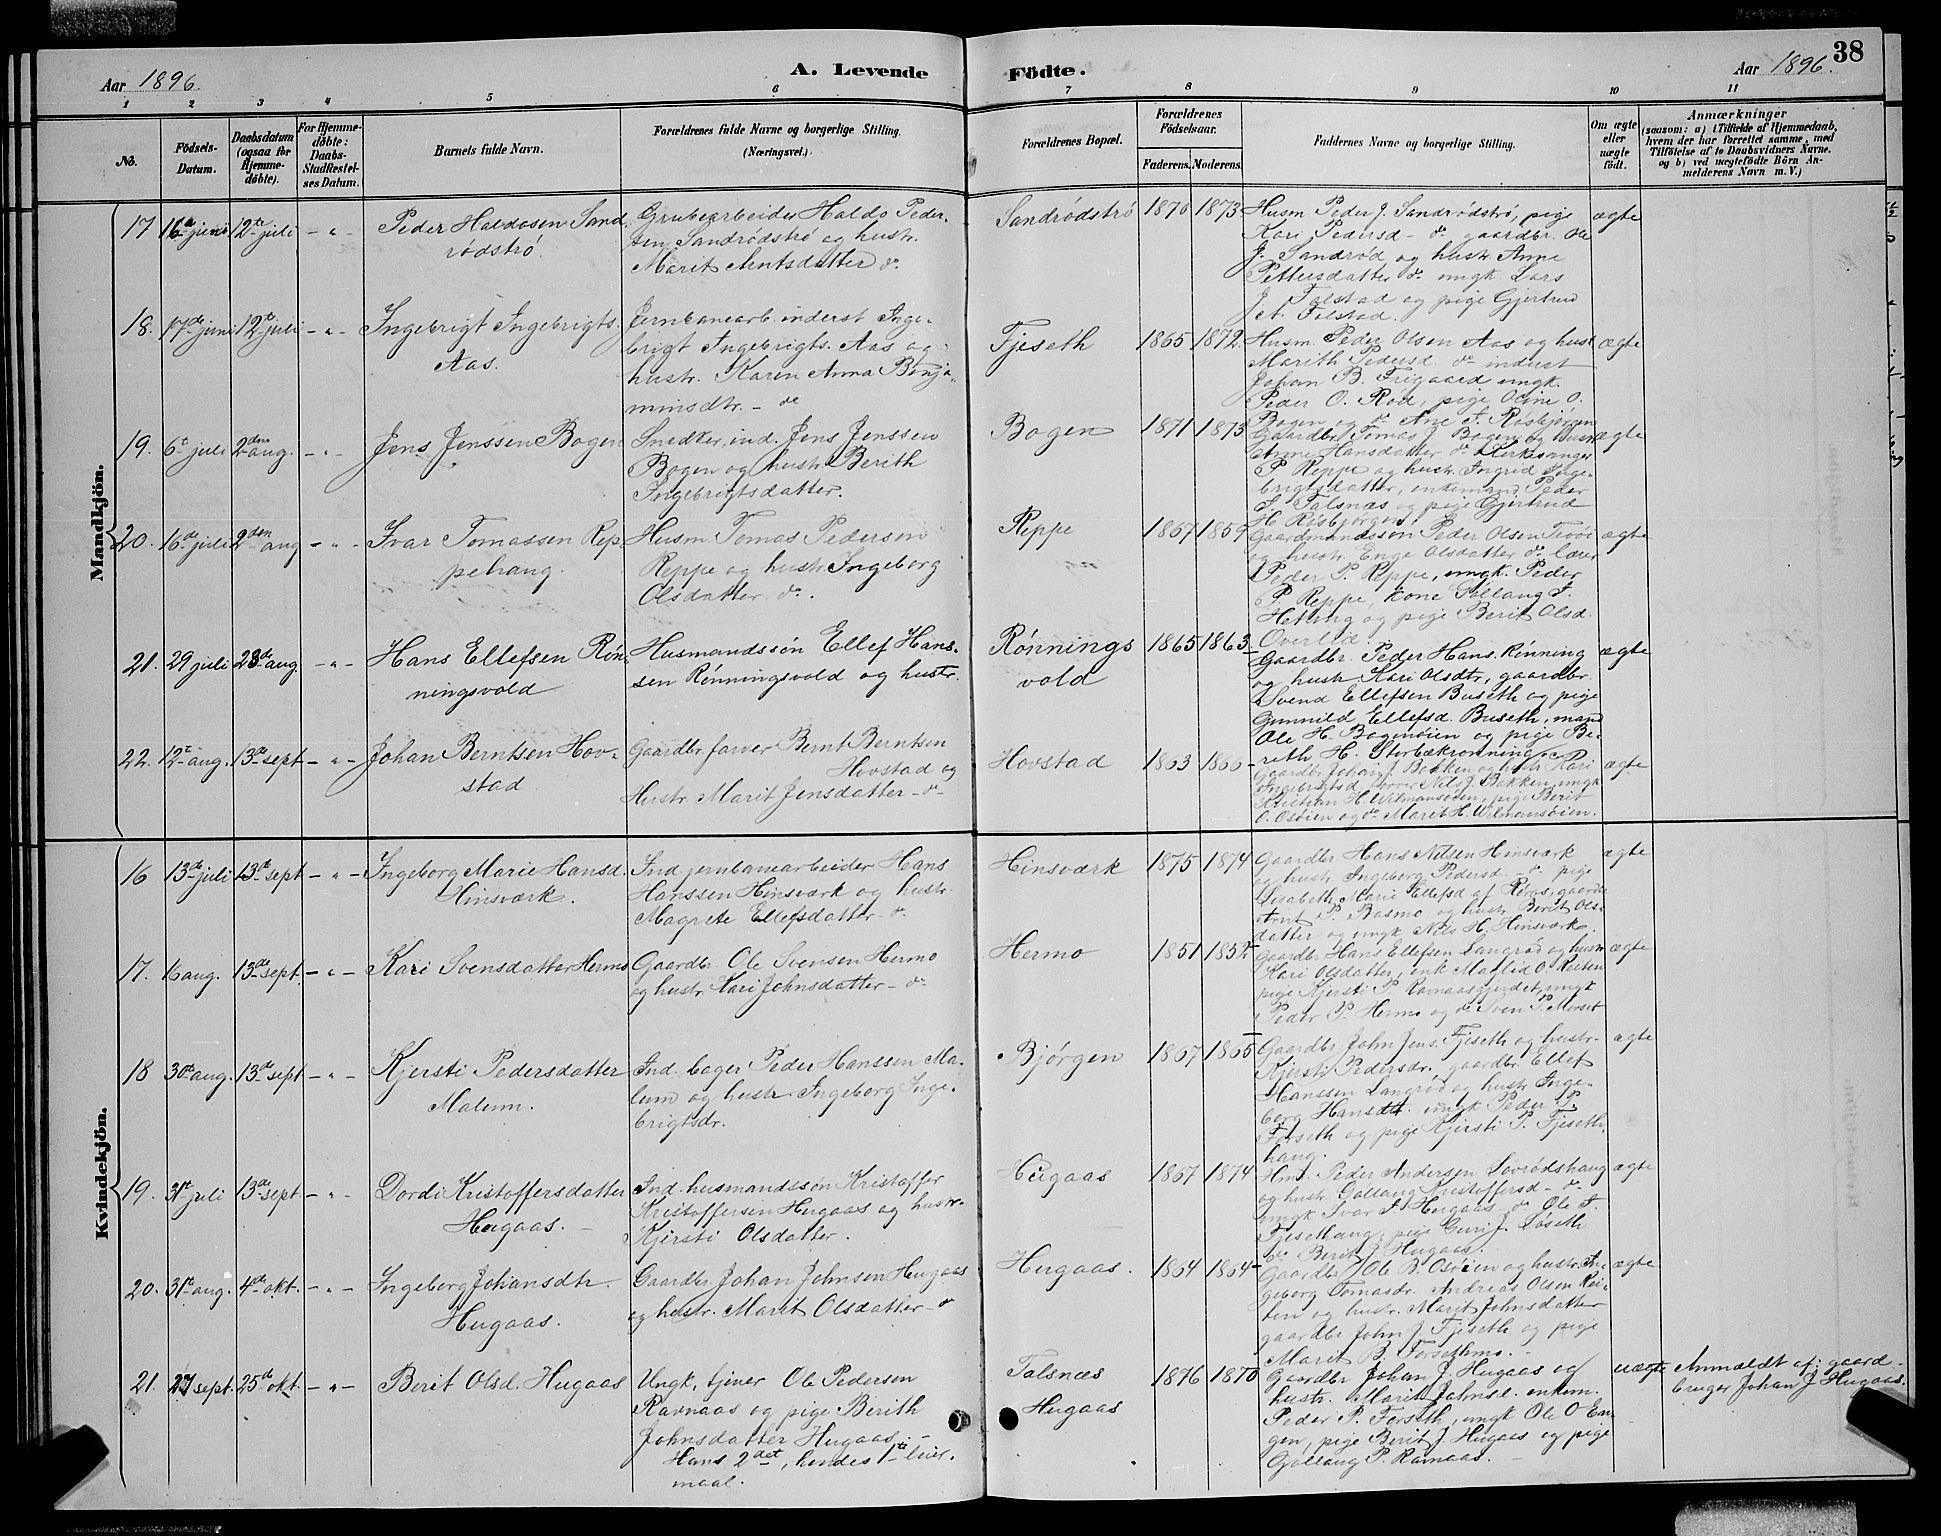 38
Aar 1896.
A. Levende
Födte.
Aar 1896.
1 2 3 4 5 6 7 8 9 10 11
No.
Födsels-
Datum.
Daabsdatum
(ogsaa for
Hjemme-
döbte).
For Hjemme-
döbte:
Daabs-
Stadfæstel-
ses Datum.
Barnets fulde Navn.
Forældrenes fulde Navne og borgerlige Stilling.
(Næringsvei.)
Forældrenes Bopæl.
Forældrenes
Födselsaar.
Faderens. Moderens.
Faddernes Navne og borgerlige Stilling.
Om ægte
eller
uægte
födt.
Anmærkninger
(saasom: a) i Tilfælde af Hjemmedaab,
hvem der har forrettet samme, med
Tilföielse af to Daabsvidners Navne,
og b) ved uægtefödte Börn An-
melderens Navn m. V.)
Mandkjön.
17 16de juni 12te juli - " -
Peder Haldosen Sand
rödströ.
Grubearbeider Haldo Peder-
sen Sandrödströ og hustr.
Marit Arntsdatter do
Sandrödströ
1870 1873
Husm Peder J. Sandrödströ, pige
Kari Pedersd - do gaardbr. Ole
J. Sandröd og hustr Anne
Pettersdatter do ungk Lars
J. Folstad og pige Gjertrud
A. Folstad.
ægte
18. 17de juni 12te juli - " -
Ingebrigt Ingebrigts.
Aas.
Jernbanearb. inderst Inge-
brigt Ingebrigts. Aas og
hustr. Karen Anna Benja-
minsdtr. - do
Fjeseth
1865 1872
Husm. Peder Olsen Aas og hust
Marith Pedersd do inderst
Johan B. Frigaard ungk.
Peder O. Rød, pige Oline O.
Bogen og do Ane F. Røsbjören
ægte
19. 6te juli 2den aug. - " -
Jens Jenssen Bogen
Snedker, ind. Jens Jenssen
Bogen og hustr Berith
Ingebrigtsdatter.
Bogen
1871 1873
Gaardbr. Tomas J. Bogen og hustr
Anne Hansdatter do kirkesanger
P. Reppe og hustr. Ingrid Inge-
brigtsdatter, enkemand Peder
S. Talsnæs og pige Gjertrud
H. Røsbjørgen
ægte
20. 16de juli 2den aug - " -
Ivar Tomassen Rep-
pehaug.
Husm Tomas Pedersen
Reppe og hustr Ingeborg
Olsdatter do.
Reppe
1867 1859
Gaardmandssøn Peder Olsen
og hustr. Olsdatter do lærer
Peder P. Reppe, ungk. Peder
P. Reppe, kone Gollaug
og pige Berit Olsd.
Overlid
ægte
21. 29 juli 23de aug - " -
Hans Ellefsen Røn-
ningsvold
Husmandssøn Ellef Hans-
sen Rønningsvold og hustr.
Rønnings
vold
1865 1863
Gaardbr. Peder Hans. Rønning
og hustr Kari Olsdtr, gaardbr
Svend Ellefsen Buseth og pige
Gunnild Ellefsd. Buseth, mand
Ole H. Bogensöien og pige Be-
reth H. Storbækrønning
ægte
22. 12te aug. 13de sept - " -
Johan Berntsen Hov-
stad
Gaardbr farver Bernt Berntsen
Hovstad og
Hustr Marit Jensdatter - do -
Hovstad
1863 1866
Gaardbr Johan J. Bakken og hustr Kari
Ingebrigtsd farver Nils J. Bakken, ungk
Kristian H. Wilmansöien, pige Berit
O. Osöien og do Marit H. Wilmansöien.
ægte
Kvindekjön.
16 13de juli 13de sept - " -
Ingeborg Marie Hansd.
Hinsværk.
Ind jernbanearbeider Hans
Hanssen Hinsværk og hustr
Magrete Ellefsdatter - do -
Hinsværk
1875 1874
Gaardbr Hans Nilsen Hinsværk
og hustr Ingeborg Pedersd. - do pige
Lisabeth Marie Ellefsd af Røros, gaardb
Arnt P. Basmo og hustr Berit Ols-
datter og ungk Nils H. Hinsværk.
ægte
17. 16 aug. 13de sept. - " -
Kari Svensdatter Hermo
Gaardbr. Ole Svensen Hermo
og hustr Kari Johnsdatter - do -
Hermo
1851 1852
Gaardbr Hans Ellefsen Langrød og hustr
Kari Olsdatter, enk Maglid O. Reiten
pige Kjersti P. Ravnaasgjerdet, ungk
Peder P. Hermo og do Sven P. Morset
ægte
18 30te aug. 13de sept - " -
Kjersti Pedersdatter
Malum.
Ind. bager Peder Hanssen Ma-
lum og hustr Ingeborg Inge-
brigtsdr.
Bjørgen
1867 1865
Gaardbr John Jens. Fjeseth og hustr
Kjersti Pedersdr. gaardbr Ellef
Hanssen Langrød og hustr Inge-
borg Hansdt. ungk Peder P.
Forseth og pige Kjersti P. Fjeseth-
haug.
ægte
19. 31te juli 13de sept - " -
Dordi Kristoffersdatter
Hugaas. -
Ind. husmandssøn Kristoffer
Kristoffersen Hugaas og hustr.
Kjersti Olsdatter.
Hugaas
1867 1874
Hm. Peder Andersen Sovrødshaug
og hustr Gollaug Kristoffersd - do -
ungk Ivar A Hugaas - do Ole F.
Fjesethaug, pige Guri J. Løseth
do Berit J. Hugaas.
ægte
20. 31te aug. 4de okt. - " -
Ingeborg Johansdtr.
Hugaas.
Gaardbr. Johan Johnsen Hugaas
og hustr. Marit Olsdatter - do
Hugaas.
1864 1864
Gaardbr Ole B. Osöien og hustr. In-
geborg Tomasdr. Andreas Olsen Rei-
ten og hustr. Marit Johnsdatter
gaardbr John J. Fjeseth og pige
Marit B. Forsethmo. -
ægte
21. 27 sept. 25de okt. - " -
Berit Olsd. Hugaas
Ungk, tjener Ole Pedersen
Ravnaas og pige Berith
Johnsdatter Hugaas. -
Hans 2det, hendes 1te leier-
maal.
Talsnæs
Hugaas
1876 1870
Gaardbr Johan J. Hugaas og
hustr. Marit Johnsd. enkem.
Peder P. Forseth, ungk Ole O En-
gen, pige Berit J. Hugaas og pige
Gollaug P. Ravnaas. -
uægte
Anmeldt af: gaard-
bruger Johan J Hugaas.